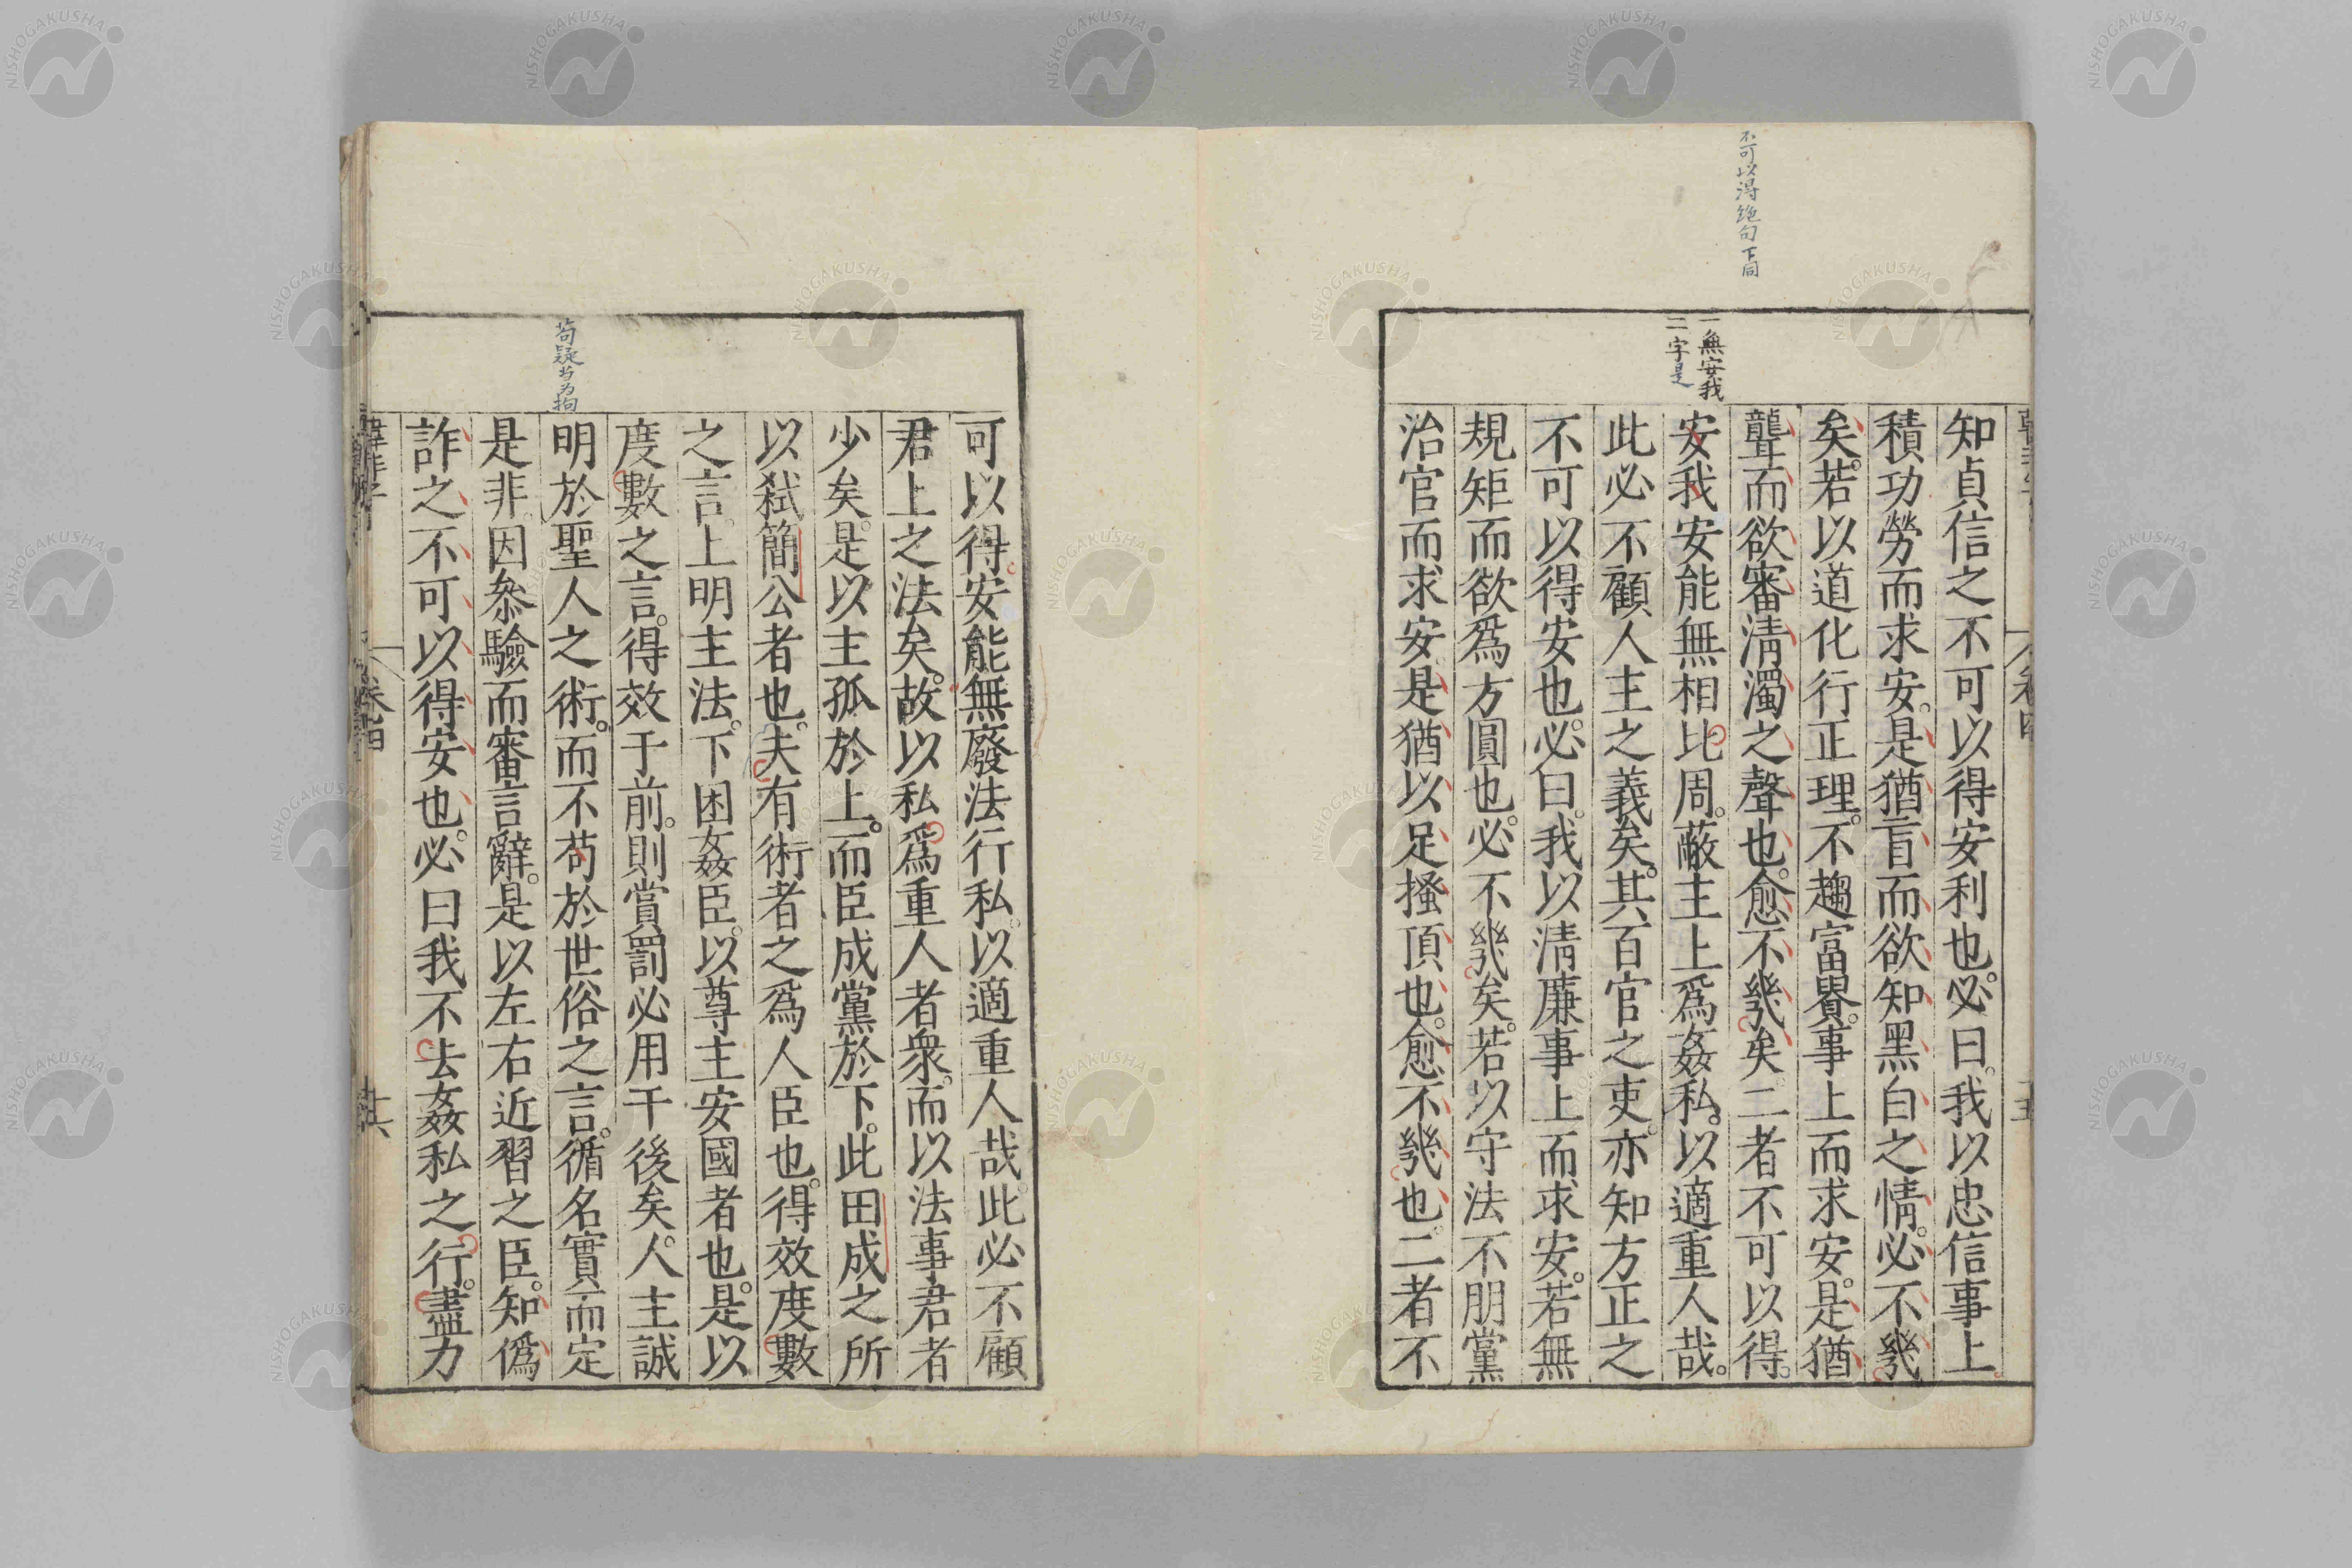 不可以得飽句下同
一無安我
二字是
知貞信之不可以得安利也。必曰。我以忠信事上。
積功勞而求安。是猶盲而欲知黑白之情。必不幾
矣。若以道化行正理。不趨富貴。事上而求安。是猶
聾而欲審清濁之聲也。愈不幾矣二者不可以得。
安我安能無相比周。蔽主上爲姦私。以適重人哉。
此必不顧人主之義矣。其百官之吏。亦知方正之
不可以得安也。必曰。我以清廉事上而求安。若無
規矩而欲爲方圓也。必不幾矣。若以守法不朋黨
治官而求安。是猶以足搔頂也。愈不幾也。二者不
可以得。安能無廢法行私。以適重人哉。此必不顧
君上之法矣。故以私爲重人者衆。而以法事君者
少矣。是以主孤於上。而臣成黨於下。此田成之所
以弑簡公者也。夫有術者之爲人臣也。得效度數
之言。上明主法。下困姦臣。以尊主安國者也。是以
度數之言。得效于前。則賞罰必用于後矣。人主誠
明於聖人之術。而不苟於世俗之言。循名實而定
是非。因參驗而審言辭。是以左右近習之臣。知僞
詐之不可以得安也。必曰我不去姦私之行。盡力
苟疑当为拘
卷四